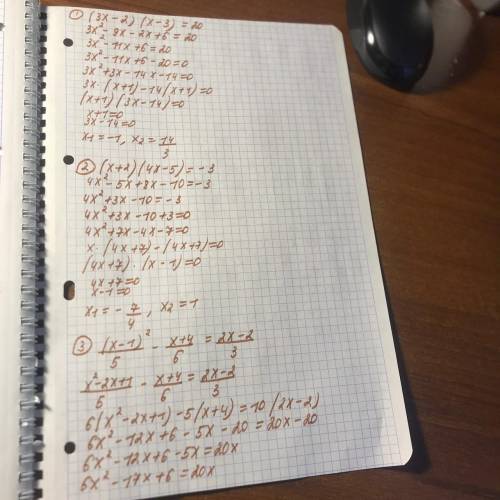 1) (3x-2)(x-3)=20
3x²-9x-2x+6=20
3x²-11x+6=20
3x²-11x+6-20=0
3x²+3x-14x-14=0
3x·(x+1)-14(x+1)=0
(x+1)(3x-14)=0
x+1=0
3x-14=0
x1=-1, x2=14/3
2) (x+2)(4x-5)=-3
4x²-5x+8x-10=-3
4x²+3x-10=-3
4x²+3x-10+3=0
4x²+7x-4x-7=0
x·(4x+7)-(4x+7)=0
(4x+7)·(x-1)=0
4x+7=0
x-1=0
x1=-7/4, x2=1
3) (x-1)²/5 - x+4/6 = 2x-2/3
x²-2x+1/5 - x+4/6 = 2x-2/3
6(x²-2x+1)-5(x+4)=10(2x-2)
6x²-12x+6-5x-20=20x-20
6x²-12x+6-5x=20x
6x²-17x+6=20x